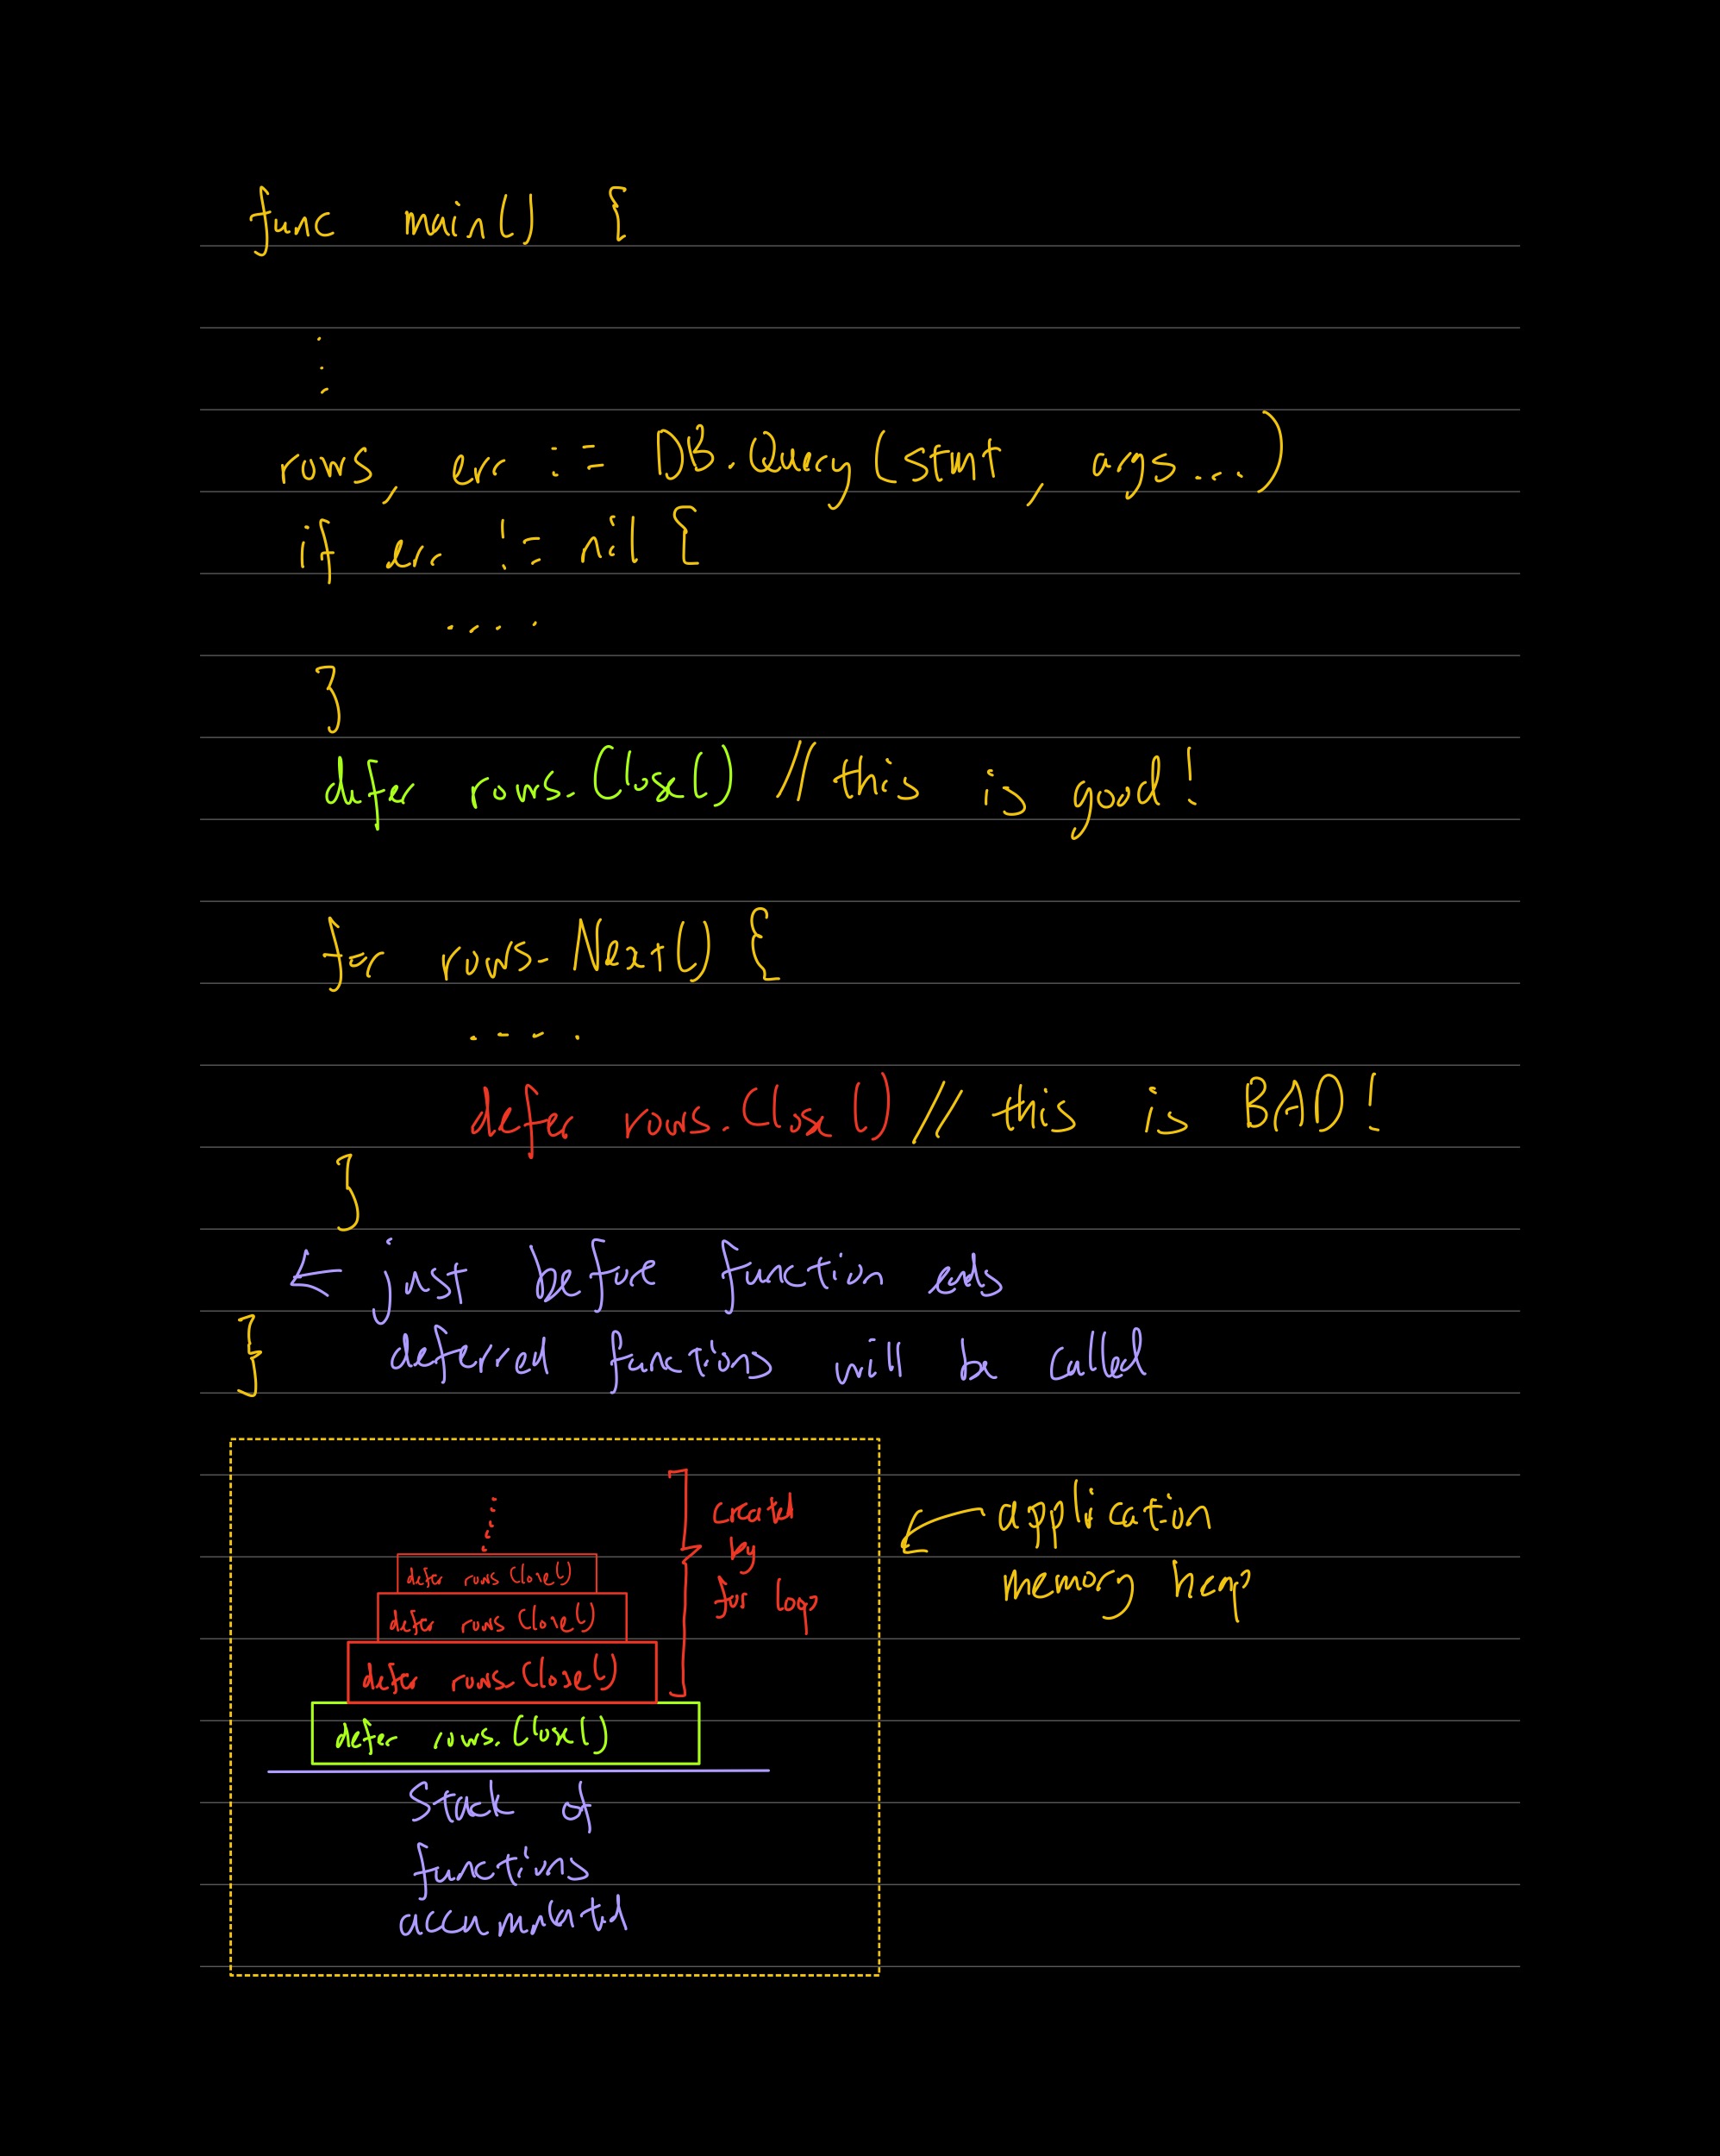 func main() {
⋮
rows, err := DB.Query(stmt, args...)
if err != nil {
....
}
defer rows.Close() // this is good!
for rows.Next() {
....
defer rows.Close() // this is BAD!
}
← just before function ends
} deferred functions will be called
⋮
defer rows Close()
defer rows Close()
defer rows Close()
defer rows.Close()
created
by
for loop
← application
memory heap
Stack of
functions
accumulated